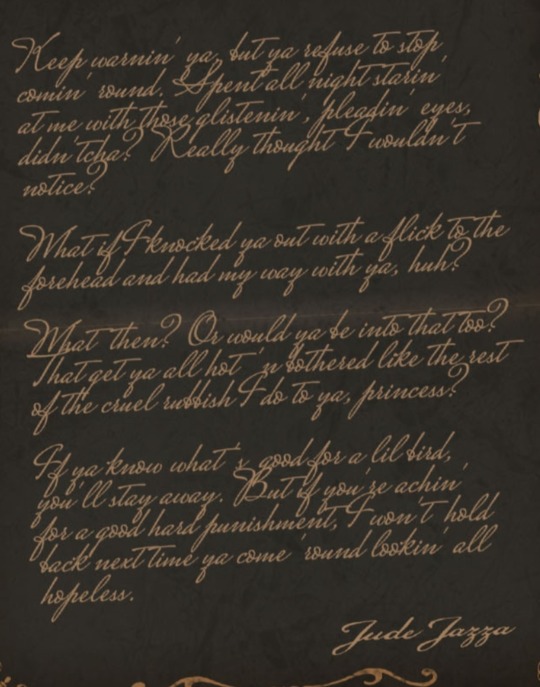 Keep warnin' ya, but ya refuse to stop
comin' round. Spent all night starin'
at me with those glistenin', pleadin' eyes,
didn'tcha? Really thought I wouldn't
notice?
What if I knocked ya out with a flick to the
forehead and had my way with ya, huh?
What then? Or would ya be into that too?
That get ya all hot 'n bothered like the rest
of the cruel rubbish I do to ya, princess?
If ya know what's good for a lil bird,
you'll stay away. But if you're achin'
for a good hard punishment, I won't hold
back next time ya come 'round lookin' all
hopeless.
Jude Jazza